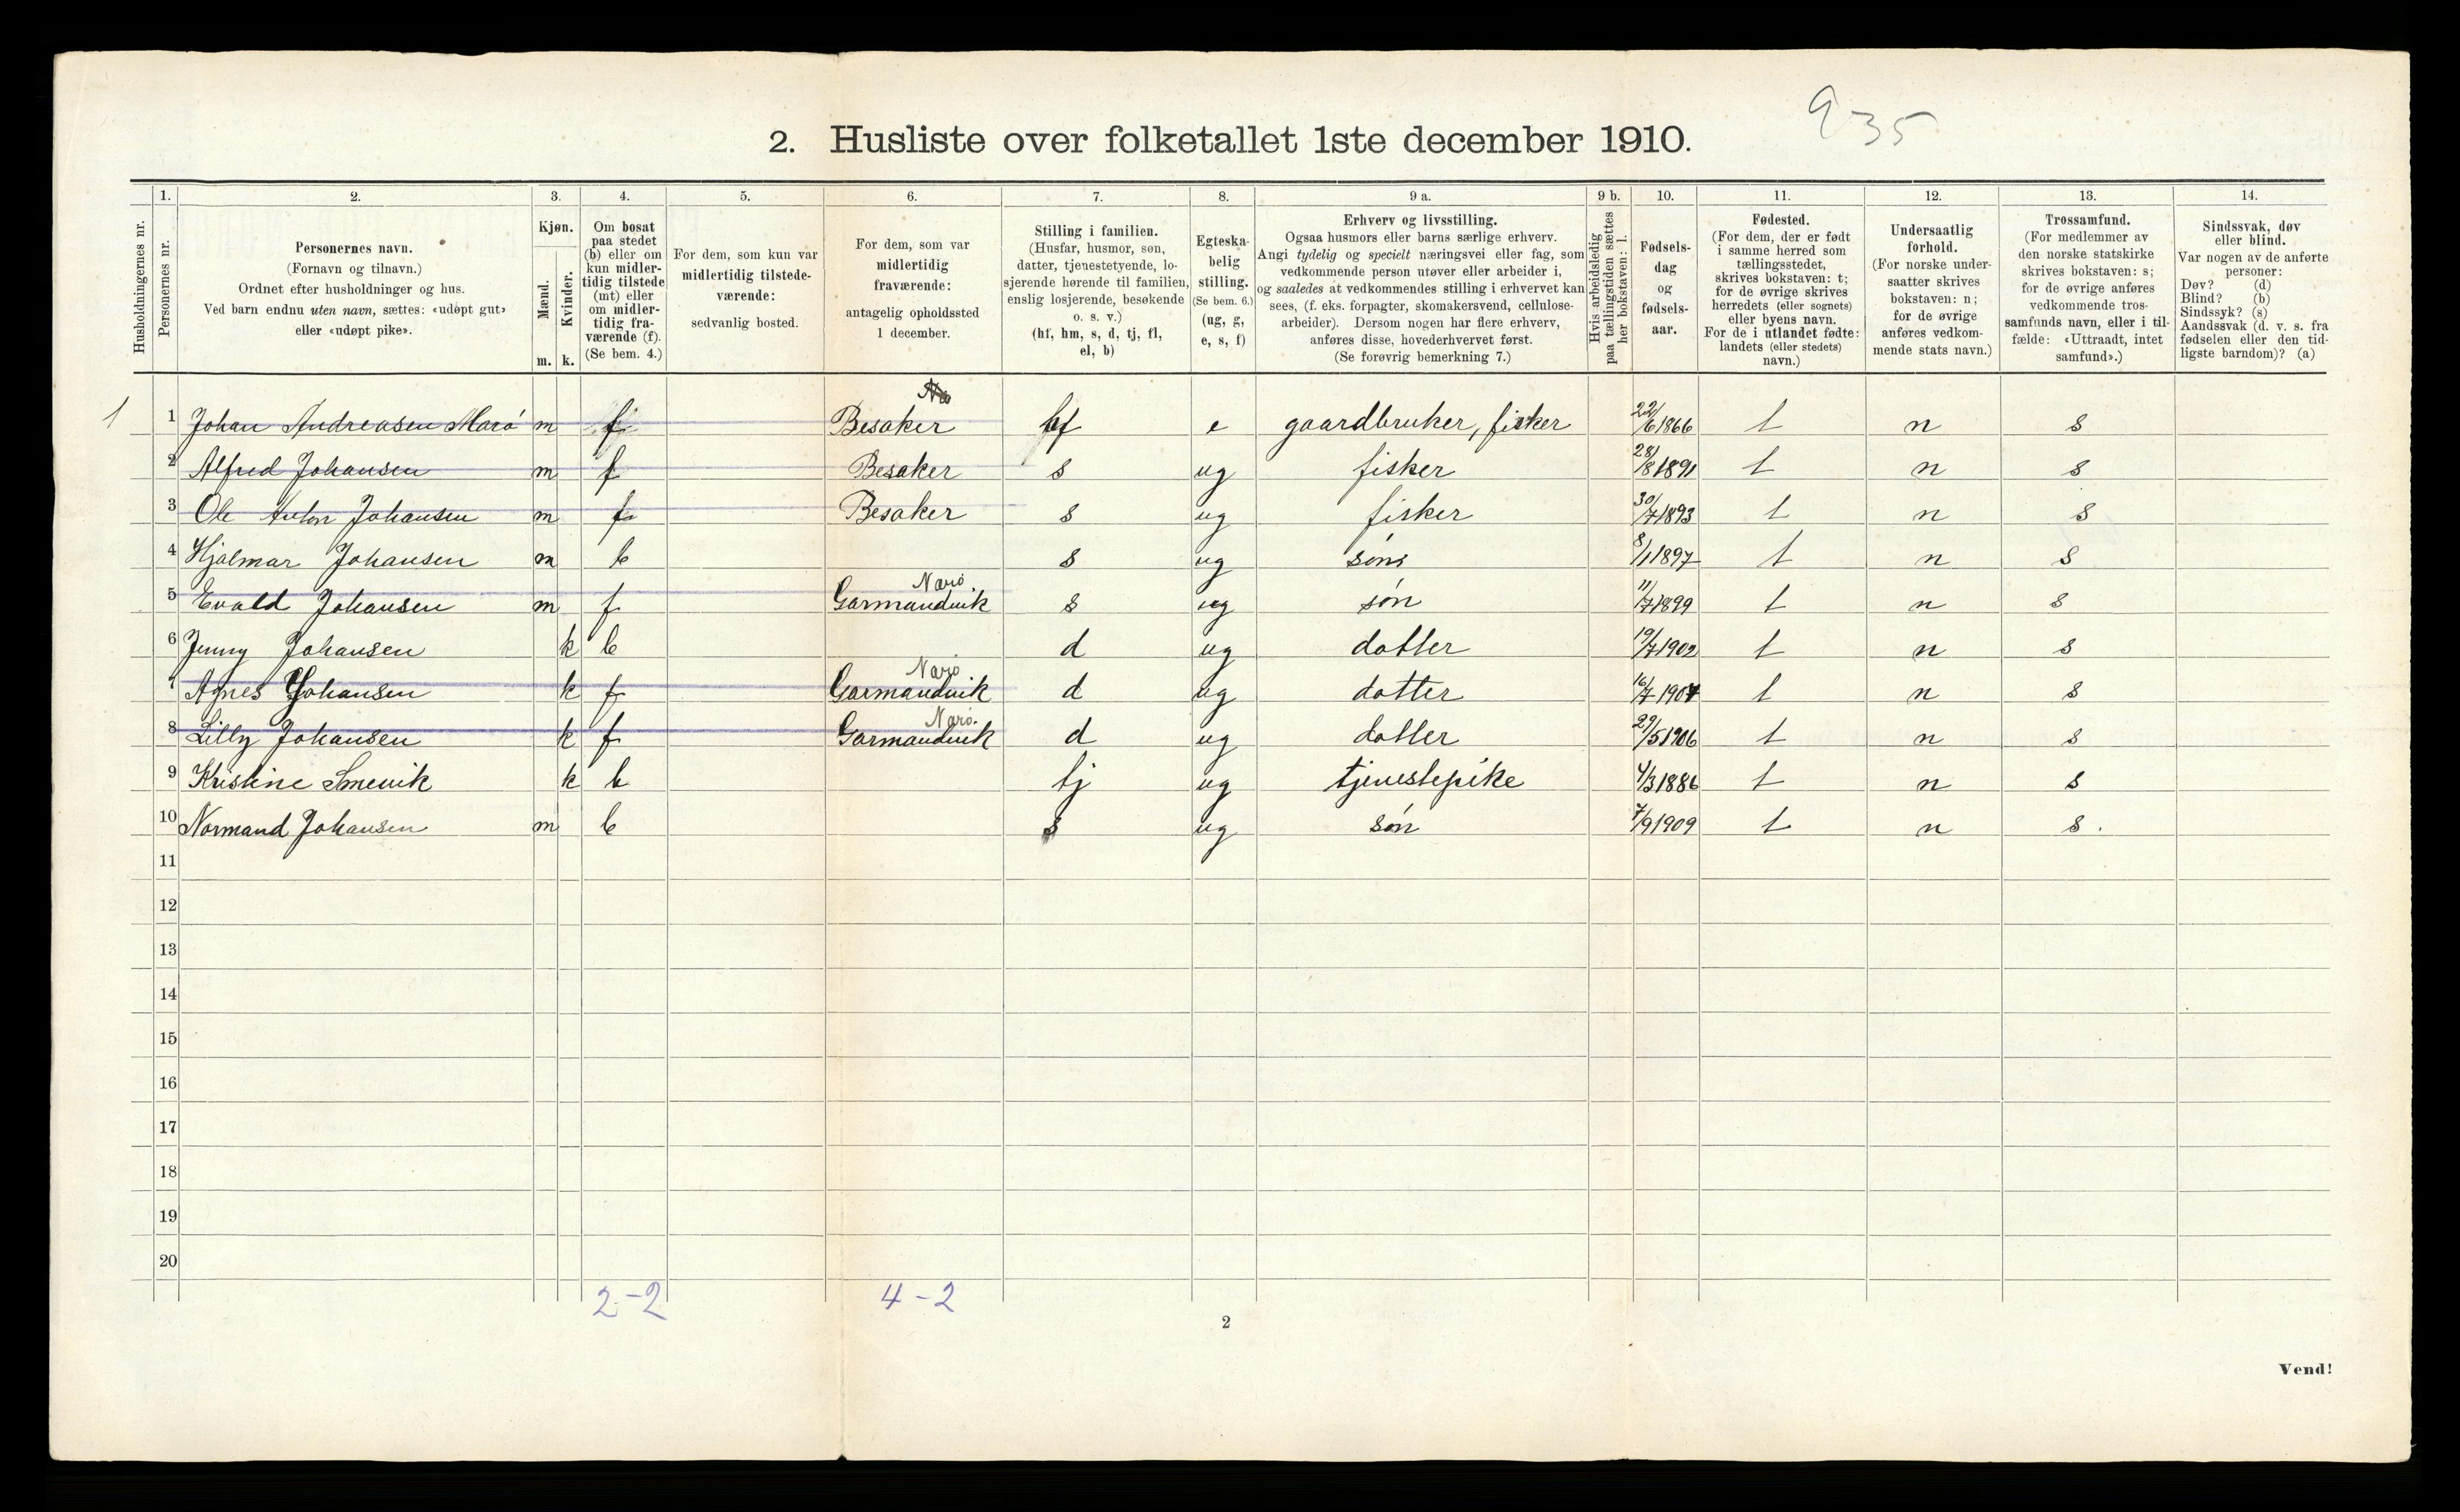 935
2. Husliste over folketallet 1ste december 1910.
Husholdningernes nr.
1. Personernes nr.
2. Personernes navn.
(Fornavn og tilnavn.)
Ordnet efter husholdninger og hus.
Ved barn endnu uten navn, sættes: «udøpt gut»
eller «udøpt pike».
3. Kjøn.
Mænd. m.
Kvinder. k.
4. Om bosat
paa stedet
(b) eller om
kun midler-
tidig tilstede
(mt) eller
om midler-
tidig fra-
værende (f).
(Se bem. 4.)
5. For dem, som kun var
midlertidig tilstede-
værende:
sedvanlig bosted.
6. For dem, som var
midlertidig
fraværende:
antagelig opholdssted
1 december.
7. Stilling i familien.
(Husfar, husmor, søn,
datter, tjenestetyende, lo-
sjerende hørende til familien,
enslig losjerende, besøkende
o. s. v.)
(hf, hm, s, d, tj, fl,
el, b)
8. Egteska-
belig
stilling.
(Se bem. 6.)
(ug, g,
e, s, f)
9 a. Erhverv og livsstilling.
Ogsaa husmors eller barns særlige erhverv.
Angi tydelig og specielt næringsvei eller fag, som
vedkommende person utøver eller arbeider i,
og saaledes at vedkommendes stilling i erhvervet kan
sees, (f. eks. forpagter, skomakersvend, cellulose-
arbeider). Dersom nogen har flere erhverv,
anføres disse, hovederhvervet først.
(Se forøvrig bemerkning 7.)
9 b. Hvis arbeidsledig
paa tællingstiden sættes
her bokstaven: l.
10. Fødsels-
dag
og
fødsels-
aar.
11. Fødested.
(For dem, der er født
i samme herred som
tællingsstedet,
skrives bokstaven: t;
for de øvrige skrives
herredets (eller sognets)
eller byens navn.
For de i utlandet fødte:
landets (eller stedets)
navn.)
12. Undersaatlig
forhold.
(For norske under-
saatter skrives
bokstaven: n;
for de øvrige
anføres vedkom-
mende stats navn.)
13. Trossamfund.
(For medlemmer av
den norske statskirke
skrives bokstaven: s;
for de øvrige anføres
vedkommende tros-
samfunds navn, eller i til-
fælde: «Uttraadt, intet
samfund».)
14. Sindssvak, døv
eller blind.
Var nogen av de anførte
personer:
Døv? (d)
Blind? (b)
Sindssyk? (s)
Aandssvak (d. v. s. fra
fødselen eller den tid-
ligste barndom)? (a)
1 1 Johan Andreasen Marø m f Besaker hf e gaardbruker, fisker 22/6 1866 t n s
2 Alfred Johansen m f Besaker s ug fisker 28/8 1891 t n s
3 Ole Anton Johansen m f Besaker s ug fisker 30/7 1893 t n s
4 Hjalmar Johansen m b s ug søns 8/1 1897 t n s
Narö
5 Evald Johansen m f Garmandvik s ug søn 11/7 1899 t n s
6 Jenny Johansen k b d ug datter 19/7 1902 t n s
Narö
7 Agnes Johansen k f Garmandvik d ug datter 16/7 1904 t n s
Narö.
8 Lilly Johansen k f Garmandvik d ug datter 29/5 1906 t n s
9 Kristine Smevik k b tj ug tjenestepike 4/3 1886 t n s
10 Normand Johansen m b s ug søn 7/9 1909 t n s.
11
12
13
14
15
16
17
18
19
20
2-2 4-2
2
Vend!